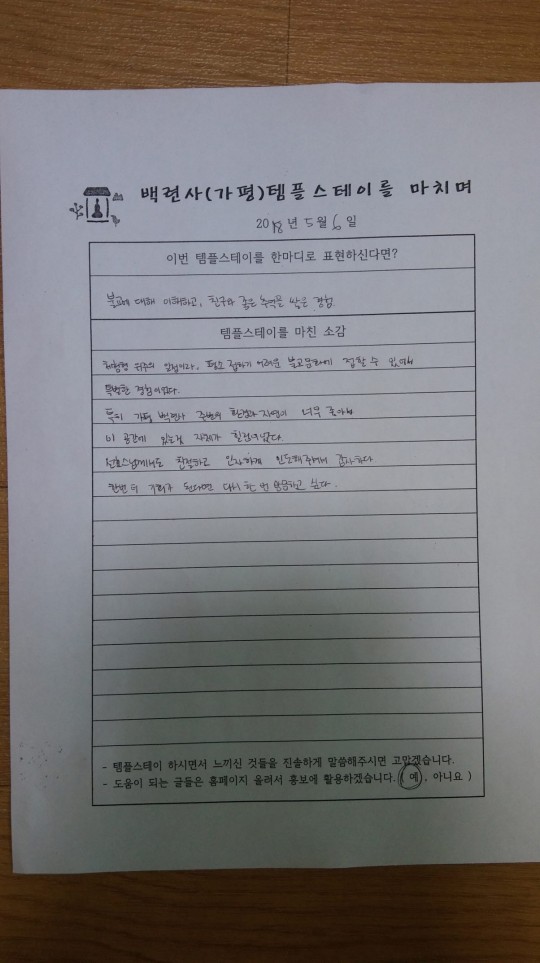 백련사(가평)템플스테이를 마치며
2018년 5월 6일
이번 템플스테이를 한마디로 표현하신다면?
불교에 대해 이해하고, 친구와 좋은 추억을 쌓은 경험
템플스테이를 마친 소감
체험형 위주의 일정이라, 평소 접하기 어려운 불교문화에 접할 수 있어서
특별한 경험이었다.
특히 가평 백련사 주변의 환경과 자연이 너무 좋아서
이 공간에 있는것 자체가 힐링이었다.
선호스님께서도 친절하고 인자하게 인도해주셔서 감사하다
한번 더 기회가 된다면 다시 한 번 방문하고 싶다.
- 템플스테이 하시면서 느끼신 것들을 진솔하게 말씀해주시면 고맙겠습니다.
- 도움이 되는 글들은 홈페이지 올려서 홍보에 활용하겠습니다.( 예 , 아니요 )